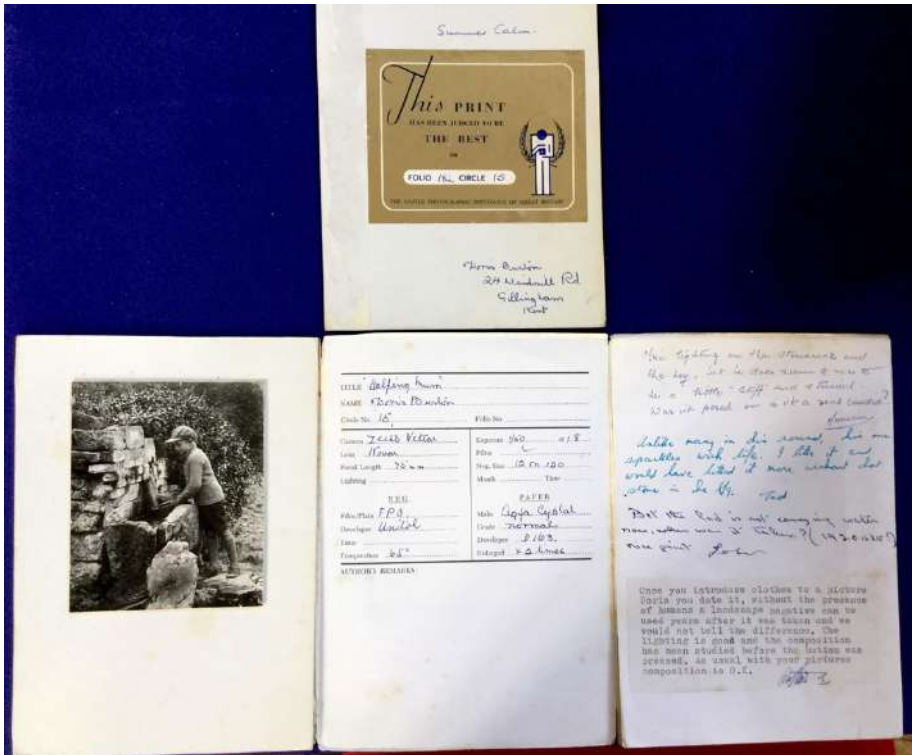 Summer Calm
This PRINT
HAS BEEN JUDGED TO BE
THE BEST
FOLIO CIRCLE 15
THE UNITED PHOTOGRAPHIC POSTFOLIOS OF GREAT BRITAIN
Doris Burton
24 Windmill Rd
Gillingham
Kent
TITLE
NAME Doris Burton
Circle No. 15 Folio No.
Camera Zeiss Nettar
Lens Novar
Focal Length 75 mm
Lighting
NEG.
Film/Plate F.P.3.
Developer Unitol
Time
Temperature 65°
AUTHOR'S REMARKS:
Exposure f 8
Filter
Neg. Size 12 on 120
Month Time
PAPER
Make Agfa
Grade normal
Developer D163.
Enlarged times
lighting on the stonework and
the boy, but he does seem to me to
be a little "stiff" and
Was it posed or is it a real candid?
Unlike many in this round, this one
sparkles with life. I like it and
would have liked it more without that
stone in the f/g. Ted
But the lad is not carrying water
now, when was it taken? (1920
nice print
Once you introduce clothes to a picture
Doris you date it, without the presence
of humans a landscape negative can be
used years after it was taken and we
would not tell the difference. The
lighting is good and the composition
has been studied before the button was
pressed, as usual with your pictures
composition is O.K.